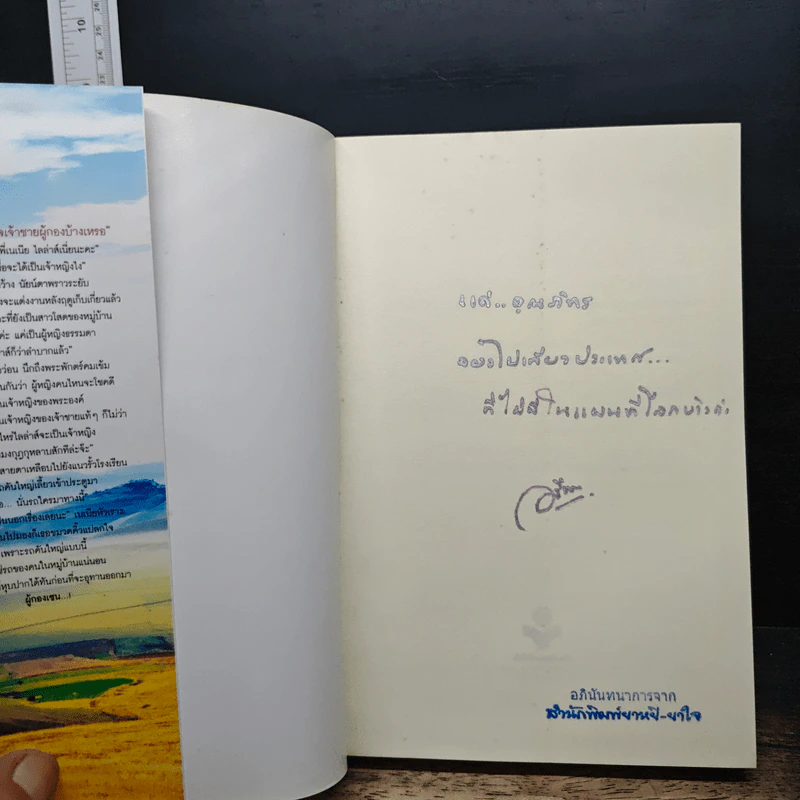 10
จเจ้าชายผู้กองบ้างเหรอ"
พี่เนเนีย ไลล่าส์เนี่ยนะคะ"
อจะได้เป็นเจ้าหญิงไง"
ว้าง นัยน์ตาพราวระยับ
งจะแต่งงานหลังฤดูเก็บเกี่ยวแล้ว
ะที่ยังเป็นสาวโสดของหมู่บ้าน
ค่ะ แค่เป็นผู้หญิงธรรมดา
าส์ก็ว่าลำบากแล้ว"
วอ่อน นึกถึงพระพักตร์คมเข้ม
นกันว่า ผู้หญิงคนไหนจะโชคดี
นเจ้าหญิงของพระองค์
เจ้าหญิงของเจ้าชายแท้ๆ ก็ไม่ว่า
ไหร่ไลล่าส์จะเป็นเจ้าหญิง
มงกุฎกุหลาบสักทีล่ะจ๊ะ"
สายตาเหลือบไปยังแนวรั้วโรงเรียน
ถคันใหญ่เลี้ยวเข้าประตูมา
อ... นั่นรถใครมาทางนี้"
นนอกเรื่องเลยนะ" เนเนียหัวเราะ
นไปมองก็เธอขมวดคิ้วแปลกใจ
เพราะรถคันใหญ่แบบนี้
รถของคนในหมู่บ้านแน่นอน
หุบปากได้ทันก่อนที่จะอุทานออกมา
ผู้กองเชน...!
แด่..คุณภัทร
ไปเสียวประเทศ...
ที่ไม่มีในแผนที่โลก
อภินันทนาการจาก
สำนักพิมพ์ยาหยี-ยาใจ